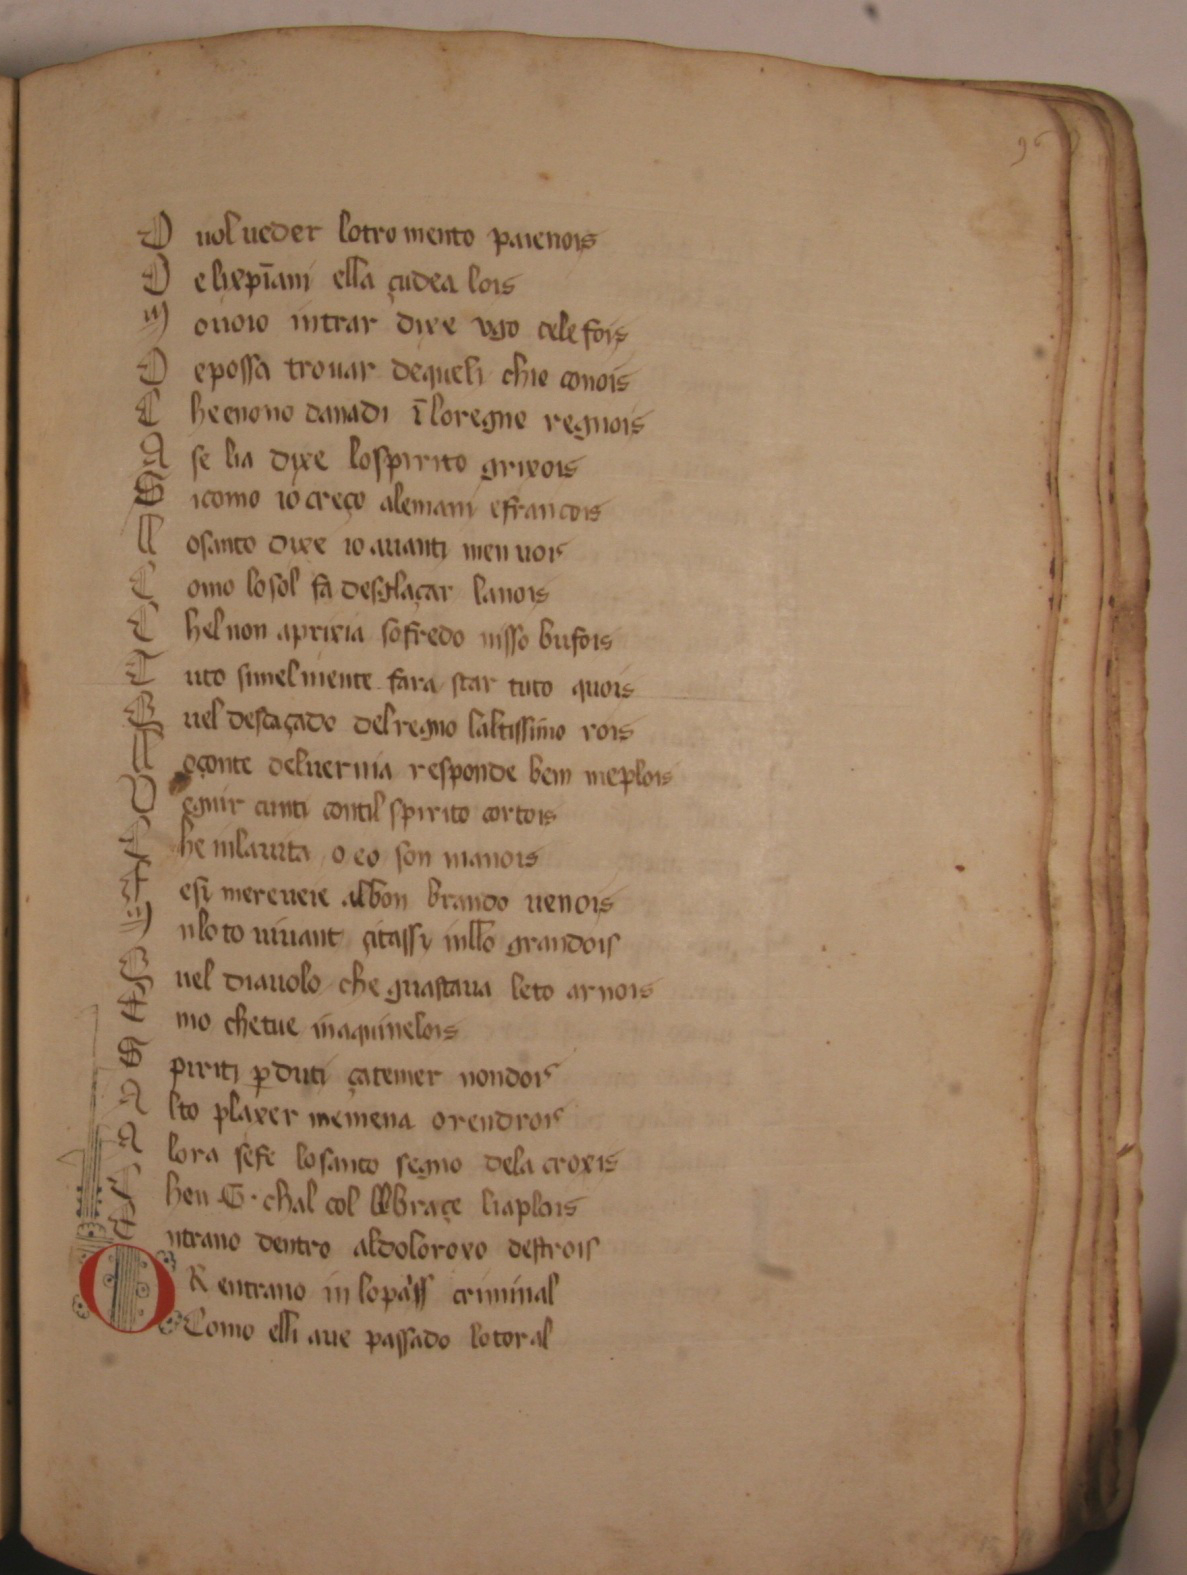 96
O uol ueder lotromento paienois
D e lixpīani ella çudea lois
M ouoio intrar dixe vgo cele fois
D epossa trouar dequeli chie conois
C heenono danadi ī loregne regnois
A se lia dixe lospirito grixois
S icomo io creço alemani efrancois
L osanto dixe io auanti men uois
C omo losol fa desglaçar lanois
C hel non aprixia sofredo nisso bufois
T uto simelmente fara star tuto quois
Q uel descaçado del regno laltissimo rois
L oconte deluernia responde ben meplois
V egnir cunti contil spirito cortois
C he inlauita o eo son manois
F esi mereueie albon brando uenois
M iloto uiuant çitassi inllo grandois
Q uel diauolo che guastaua leto arnois
E mo chetue inaquinelois
S piriti ꝑduti çatemer nondois
A lto plaxer memena orendrois
A lora sefe losanto segno dela croxis
C hen G · chal col braçe liaplois
E ntrano dentro aldoloroxo destrois
OR entrano in lopass criminal
Como elli aue passado lotoral